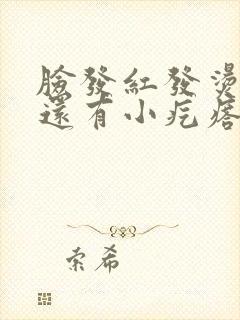 臉發紅發燙
還有小疙瘩
索希